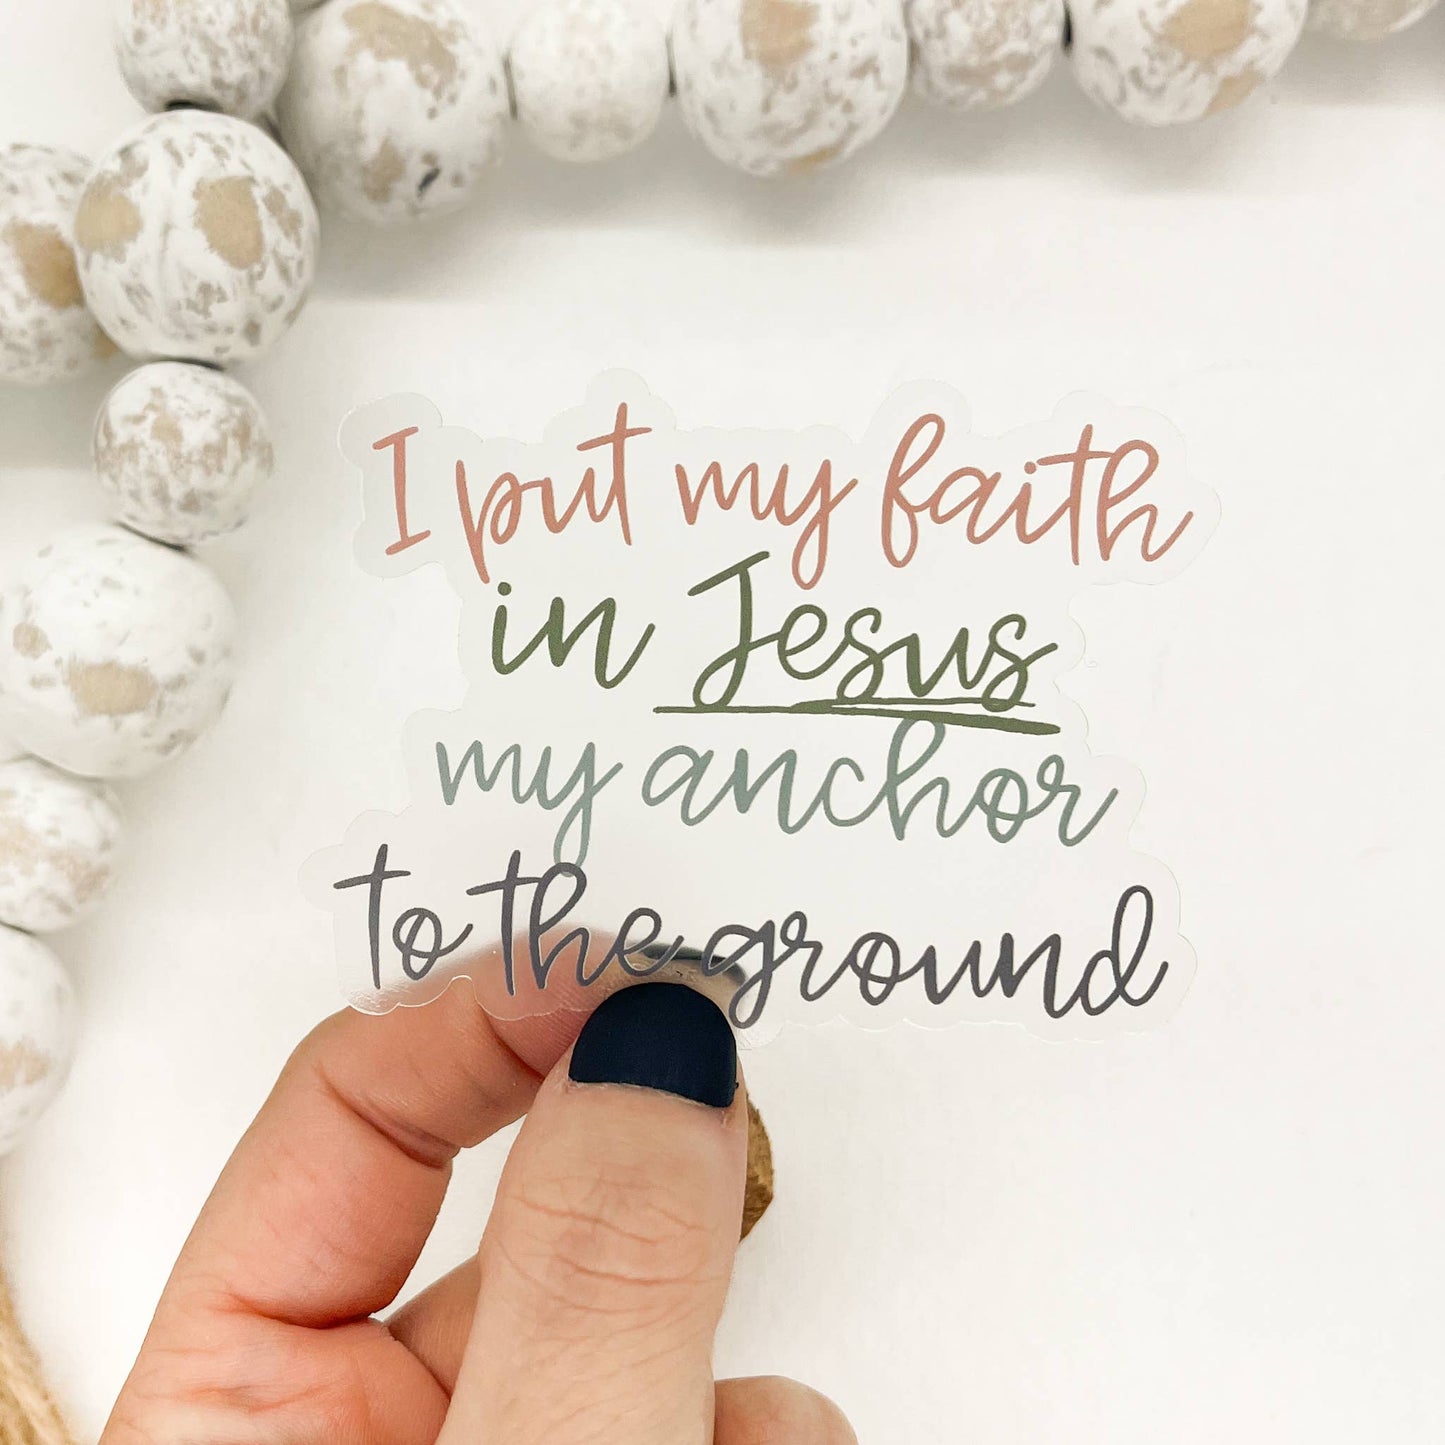 I put my faith
in Jesus
my anchor
to the ground